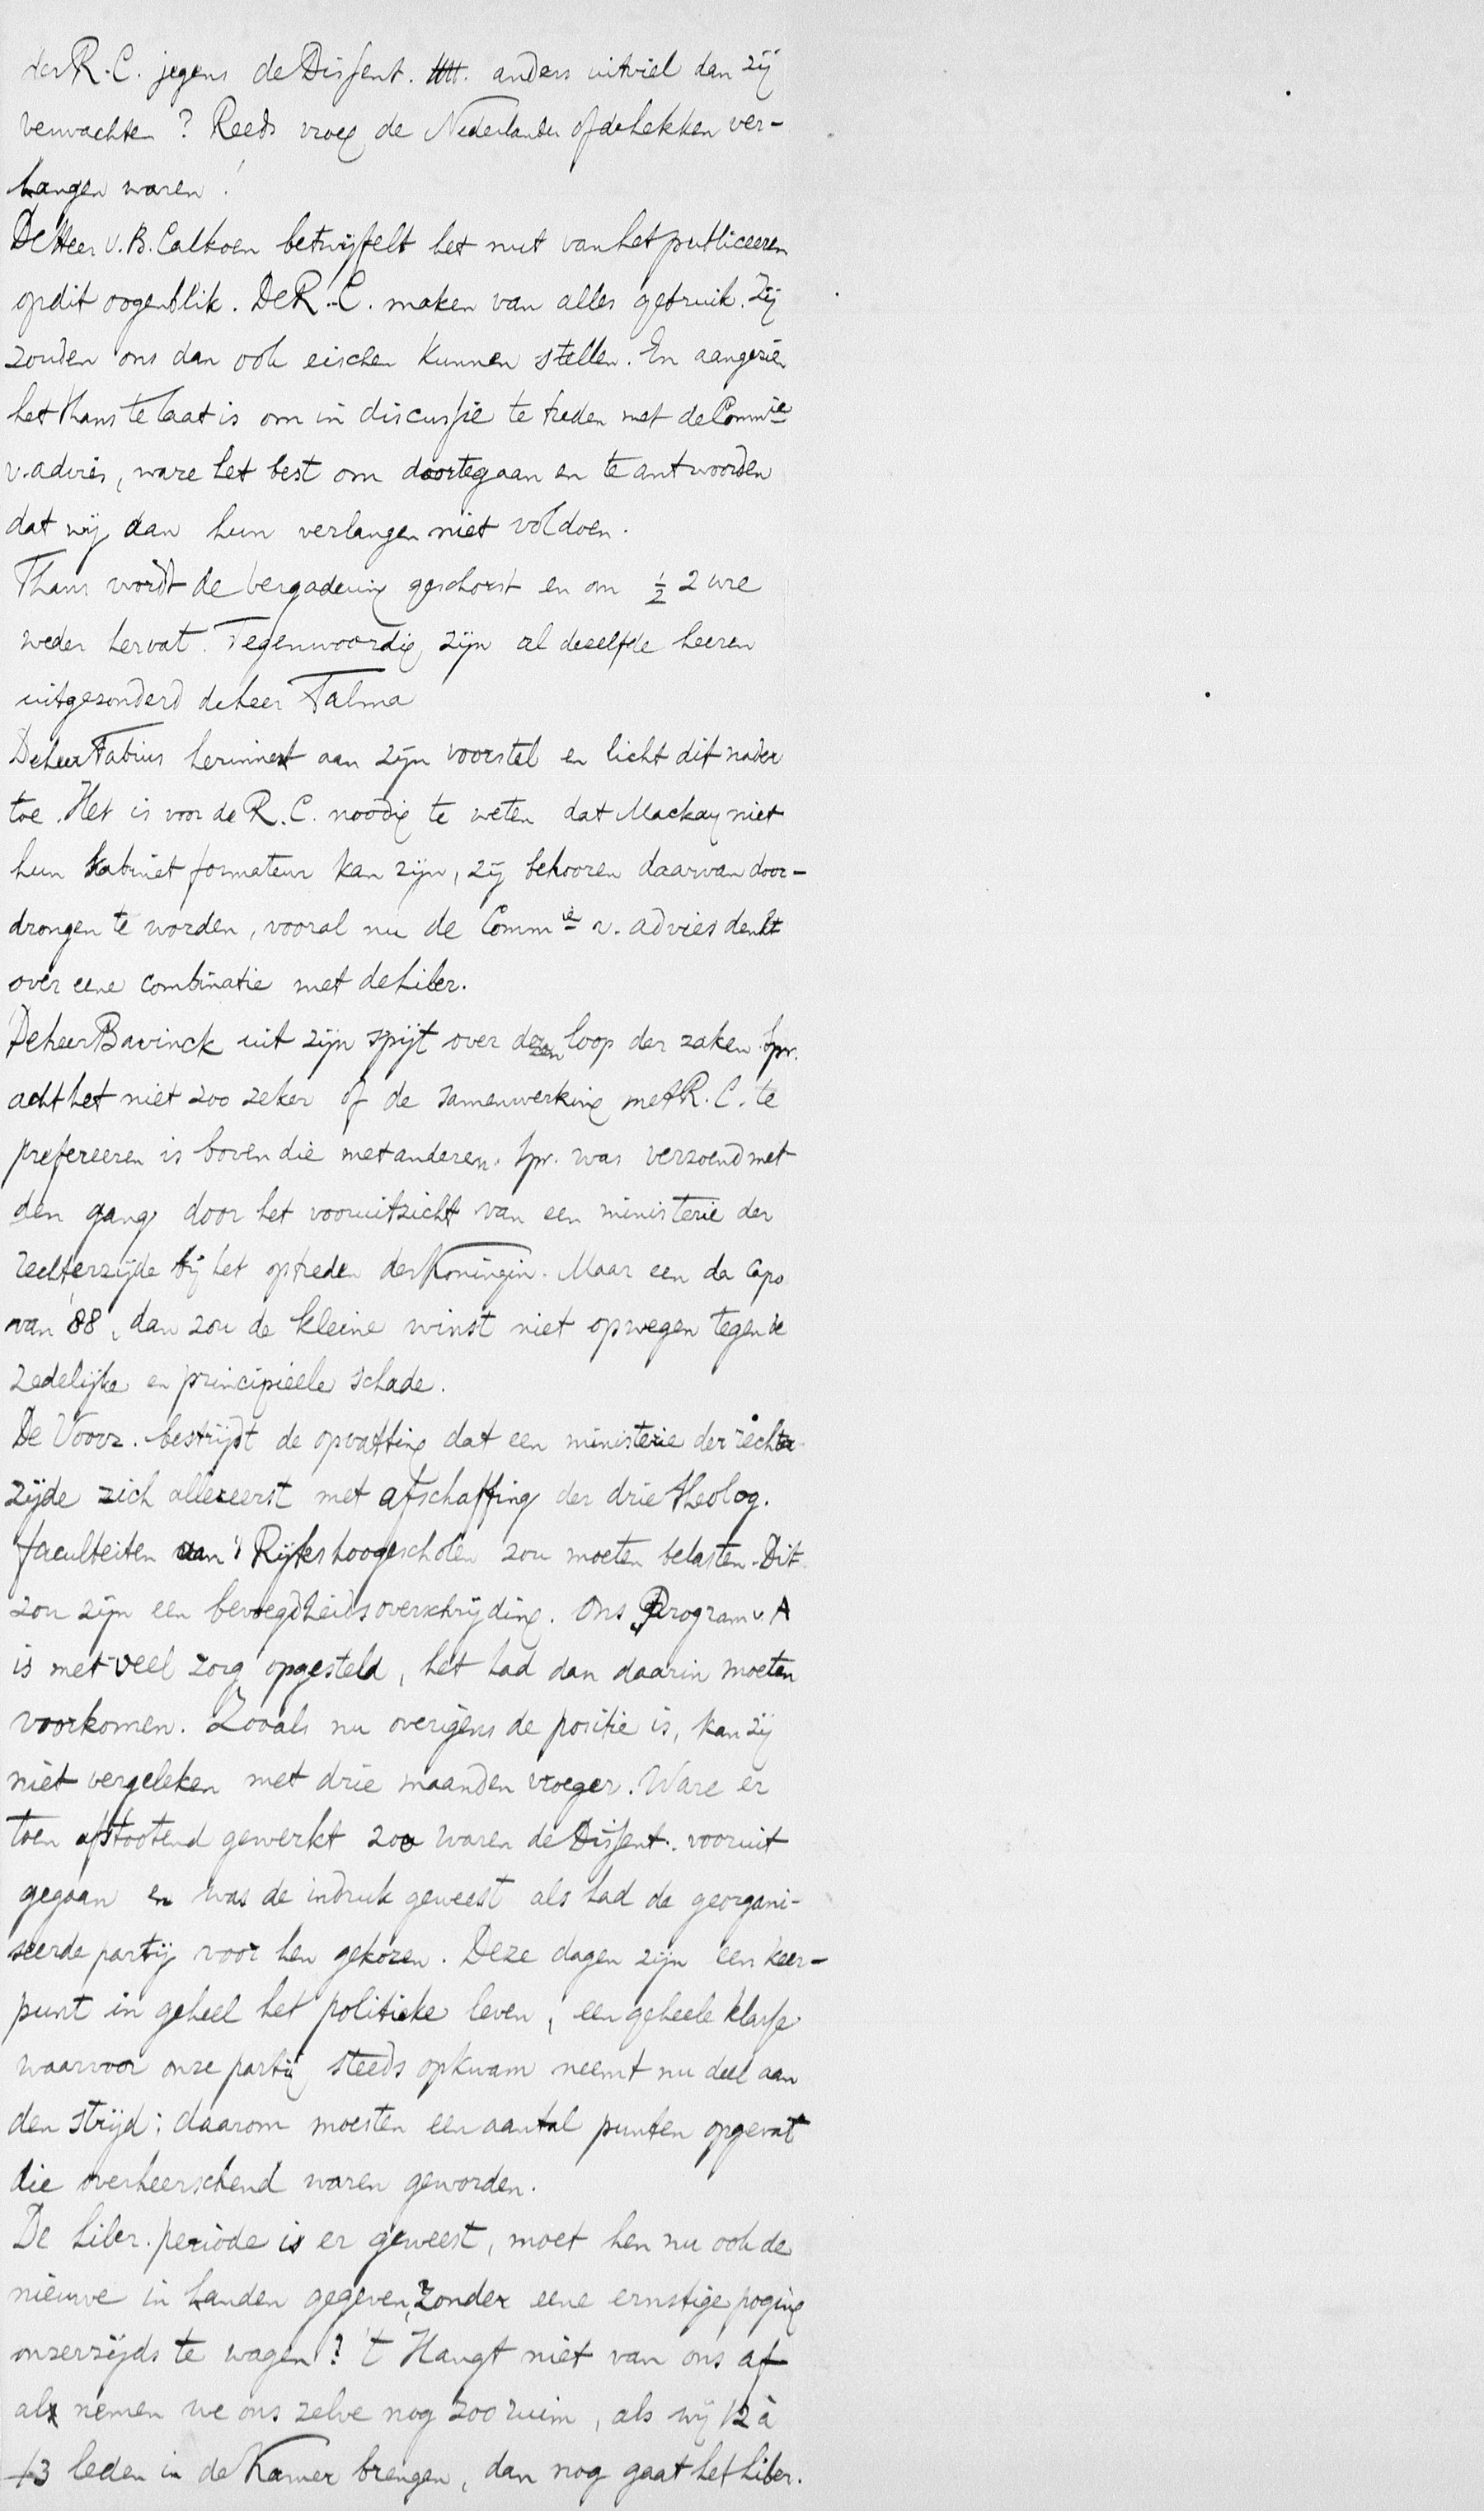 der R.C. jegens de Dissent. anders uitviel dan zij
verwachten? Reeds vroeg de Nederlander of de hekken ver-
hangen waren!
De Heer v. B. Calkoen betwijfelt het nut van het publiceeren
op dit oogenblik. De R.-C. maken van alles gebruik. Zij
zouden ons dan ook eischen kunnen stellen. En aangezien
het thans te laat is om in discussie te treden met de Commie
v. advies, ware het best om doortegaan en te antwoorden
dat wij aan hun verlangen niet voldoen.
Thans wordt de vergadering geschorst en om ½ 2 ure
weder hervat. Tegenwoordig zijn al dezelfde heeren
uitgezonderd de heer Talma
De heer Fabius herinnert aan zijn voorstel en licht dit nader
toe. Het is voor de R.C. noodig te weten dat Mackay niet
hun kabinetformateur kan zijn, zij behooren daarvan door-
drongen te worden, vooral nu de Commie v. advies denkt
over eene combinatie met de Liber.
De heer Bavinck uit zijn spijt over dezen loop der zaken. Spr.
acht het niet zoo zeker of de samenwerking met R.C. te
prefereeren is boven die met anderen. Spr. was verzoend met
den gang door het vooruitzicht van een ministerie der
rechterzijde bij het optreden der Koningin. Maar een da capo
van '88, dan zou de kleine winst niet opwegen tegen de
zedelijke en principieele schade.
De Voorz. bestrijdt de opvatting dat een ministerie der rechter
zijde zich allereerst met afschaffing der drie theolog.
faculteiten aan 's Rijks hoogescholen zou moeten belasten. Dit
zou zijn een bevoegdheidsoverschrijding. Ons Program v. A
is met veel zorg opgesteld, het had dan daarin moeten
voorkomen. Zooals nu overigens de positie is, kan zij
niet vergeleken met drie maanden vroeger. Ware er
toen afstootend gewerkt zoo waren de Dissent. vooruit
gegaan en was de indruk geweest als had de georgani-
seerde partij voor hen gekozen. Deze dagen zijn een keer-
punt in geheel het politieke leven, een geheele klasse
waarvoor onze partij steeds opkwam neemt nu deel aan
den strijd; daarom moesten een aantal punten opgevat
die overheerschend waren geworden.
De Liber. periode is er geweest, moet hen nu ook de
nieuwe in handen gegeven, zonder eene ernstige poging
onzerzijds te wagen? 't Hangt niet van ons af
al nemen we ons zelve nog zoo ruim, als wij 12 à
13 leden in de Kamer brengen, dan nog gaat het Liber.